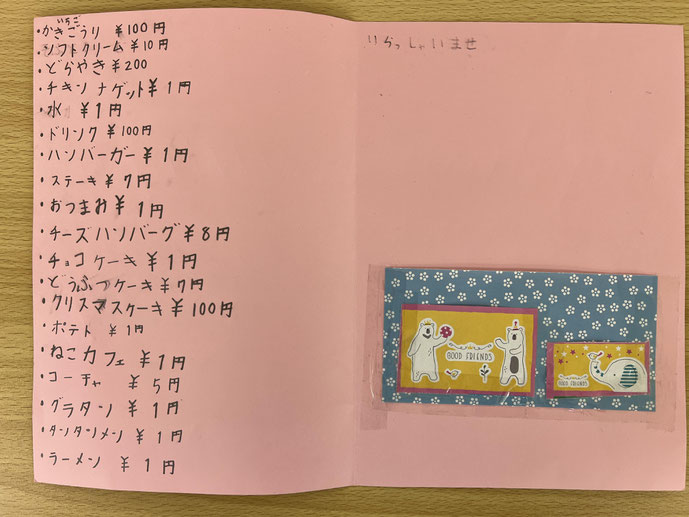 いちご
・かきごうり ¥100円
・ソフトクリーム ¥10円
・どらやき ¥200
・チキンナゲット ¥1円
・水 ¥1円
・ドリンク ¥100円
・ハンバーガー ¥1円
・ステーキ ¥7円
・おつまみ ¥1円
・チーズハンバーグ ¥8円
・チョコケーキ ¥1円
・どうぶつケーキ ¥7円
・クリスマスケーキ ¥100円
・ポテト ¥1円
・ねこカフェ ¥1円
・コーチャ ¥5円
・グラタン ¥1円
・タンタンメン ¥1円
・ラーメン ¥1円
いらっしゃいませ
GOOD FRIENDS
GOOD FRIENDS